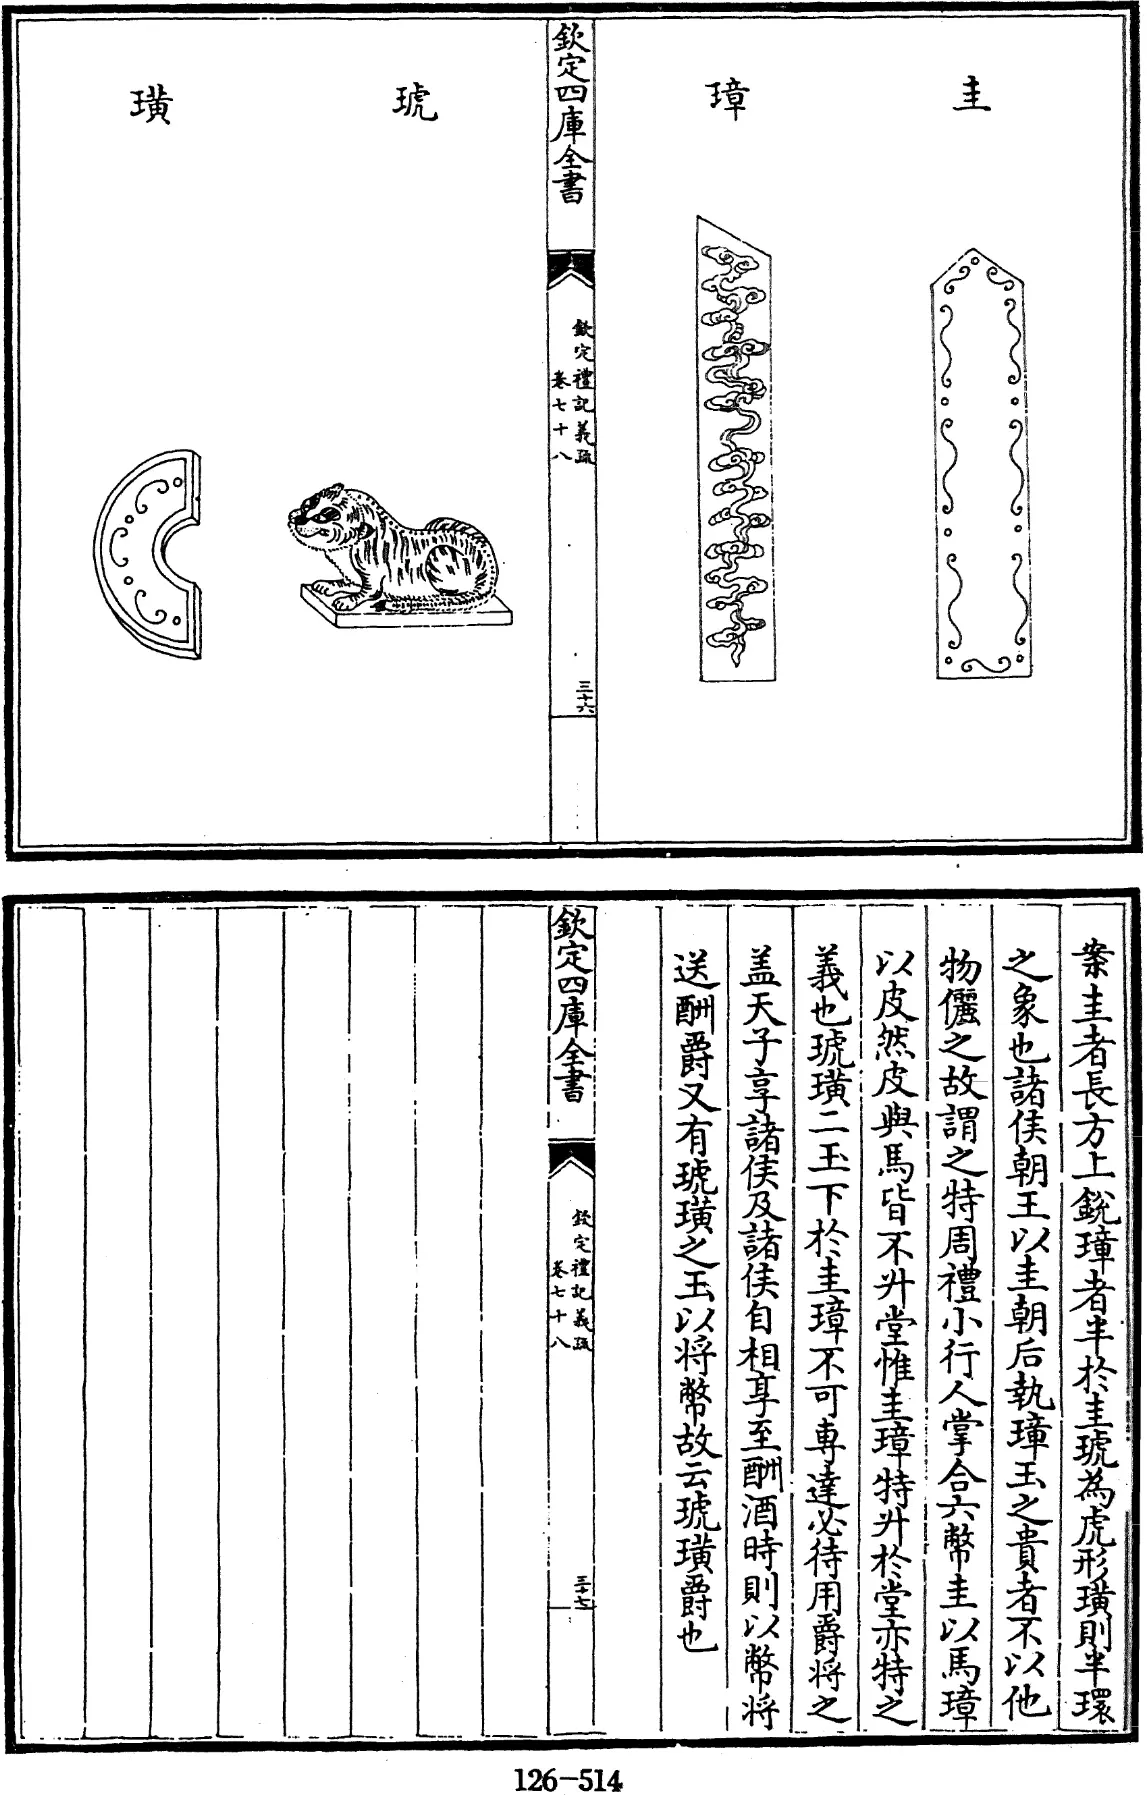 圭
璋
欽定四庫全書
欽定禮記義疏
卷七十八
三十六
琥
璜
案圭者長方上銳璋者半於圭琥為虎形璜則半環
之象也諸侯朝王以圭朝后執璋玉之貴者不以他
物儷之故謂之特周禮小行人掌合六幣圭以馬璋
以皮然皮與馬皆不升堂惟圭璋特升於堂亦特之
義也琥璜二玉下於圭璋不可專達必待用爵將之
蓋天子享諸侯及諸侯自相享至酬酒時則以幣將
送酬爵又有琥璜之玉以將幣故云琥璜爵也
欽定四庫全書
欽定禮記義疏
卷七十八
三十七
126-514